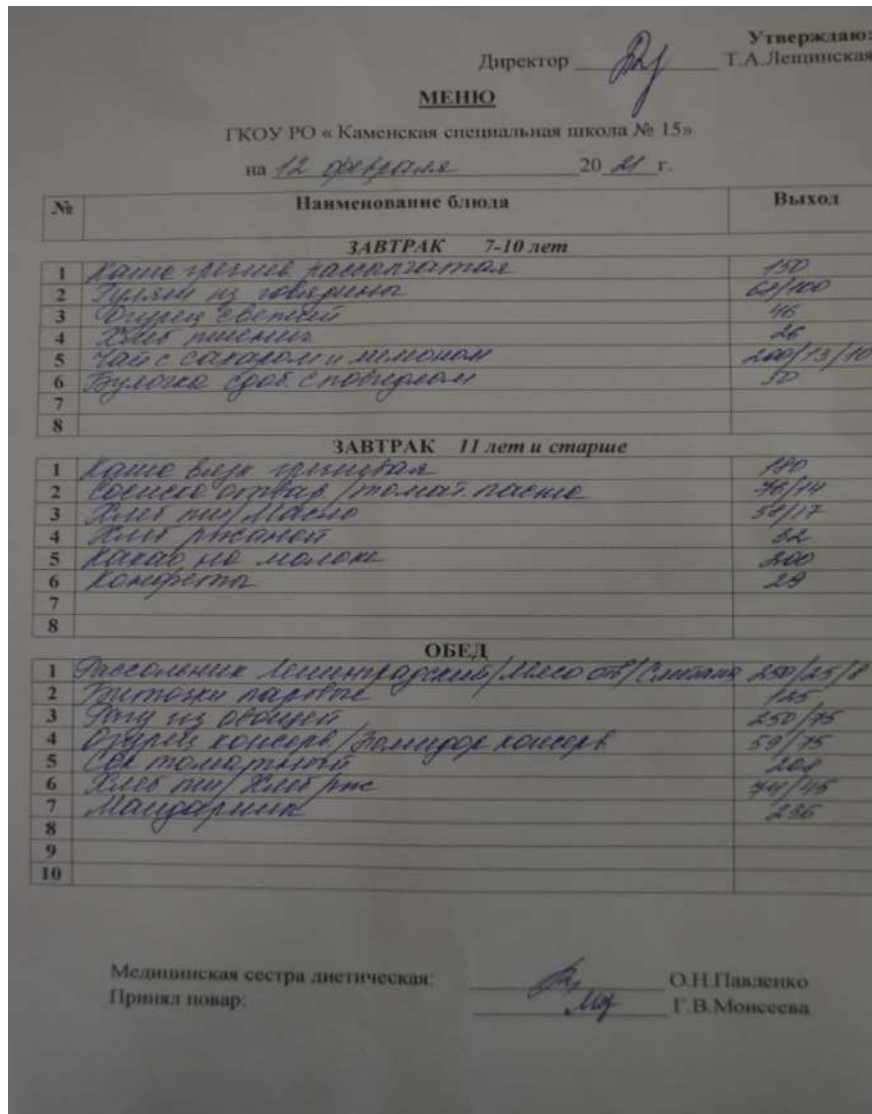 Утверждаю:
Директор Т.А.Лещинская
МЕНЮ
ГКОУ РО « Каменская специальная школа № 15»
на 12 февраля 20 21 г.
№ Наименование блюда Выход
ЗАВТРАК 7-10 лет
1 Каша гречнев рассыпчатая 150
2 Гуляш из говядины /100
3 Огурец свежий 46
4 Хлеб пшенич 26
5 Чай с сахаром и лимоном 200/13/10
6 Булочка сдоб. с повидлом 50
7
8
ЗАВТРАК 11 лет и старше
1 Каша вязк. гречневая 180
2 Сосиска отвар. /томат. паста 76/14
3 Хлеб пш/Масло 58/17
4 Хлеб ржаной 32
5 Какао на молоке 200
6 Конфеты 29
7
8
ОБЕД
1 Рассольник Ленинградский/Мясо отв/Сметана 250/25/8
2 Биточки паровые 125
3 Рагу из овощей 250/75
4 Огурец консерв/Помидор консерв 59/75
5 Сок томатный 208
6 Хлеб пш/Хлеб рж 74/45
7 Мандарины 236
8
9
10
Медицинская сестра диетическая: О.Н.Павленко
Принял повар: Г.В.Моисеева